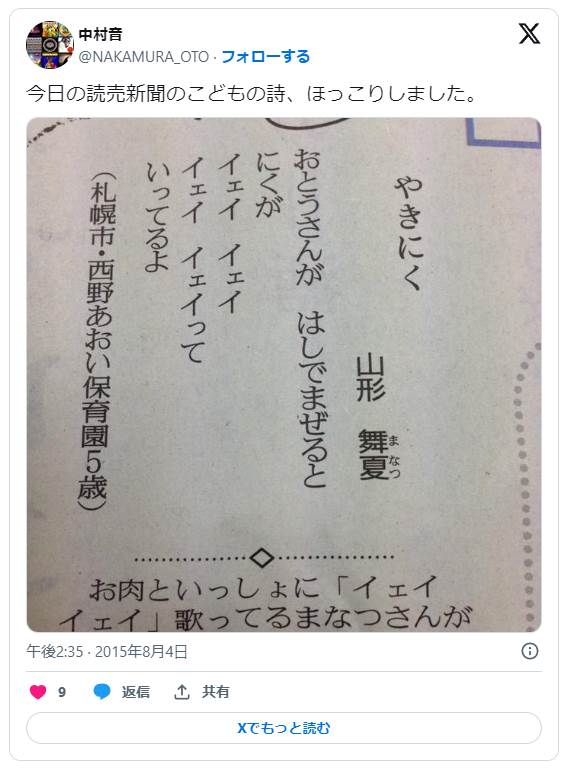 中村音
@NAKAMURA_OTO · フォローする
今日の読売新聞のこどもの詩、ほっこりしました。
やきにく
山形 舞夏
まなつ
おとうさんが はしでまぜると
にくが
イェイ イェイ
イェイ イェイって
いってるよ
（札幌市・西野あおい保育園5歳）
お肉といっしょに「イェイ
イェイ」歌ってるまなつさんが
午後2:35 · 2015年8月4日
9 返信 共有
Xでもっと読む